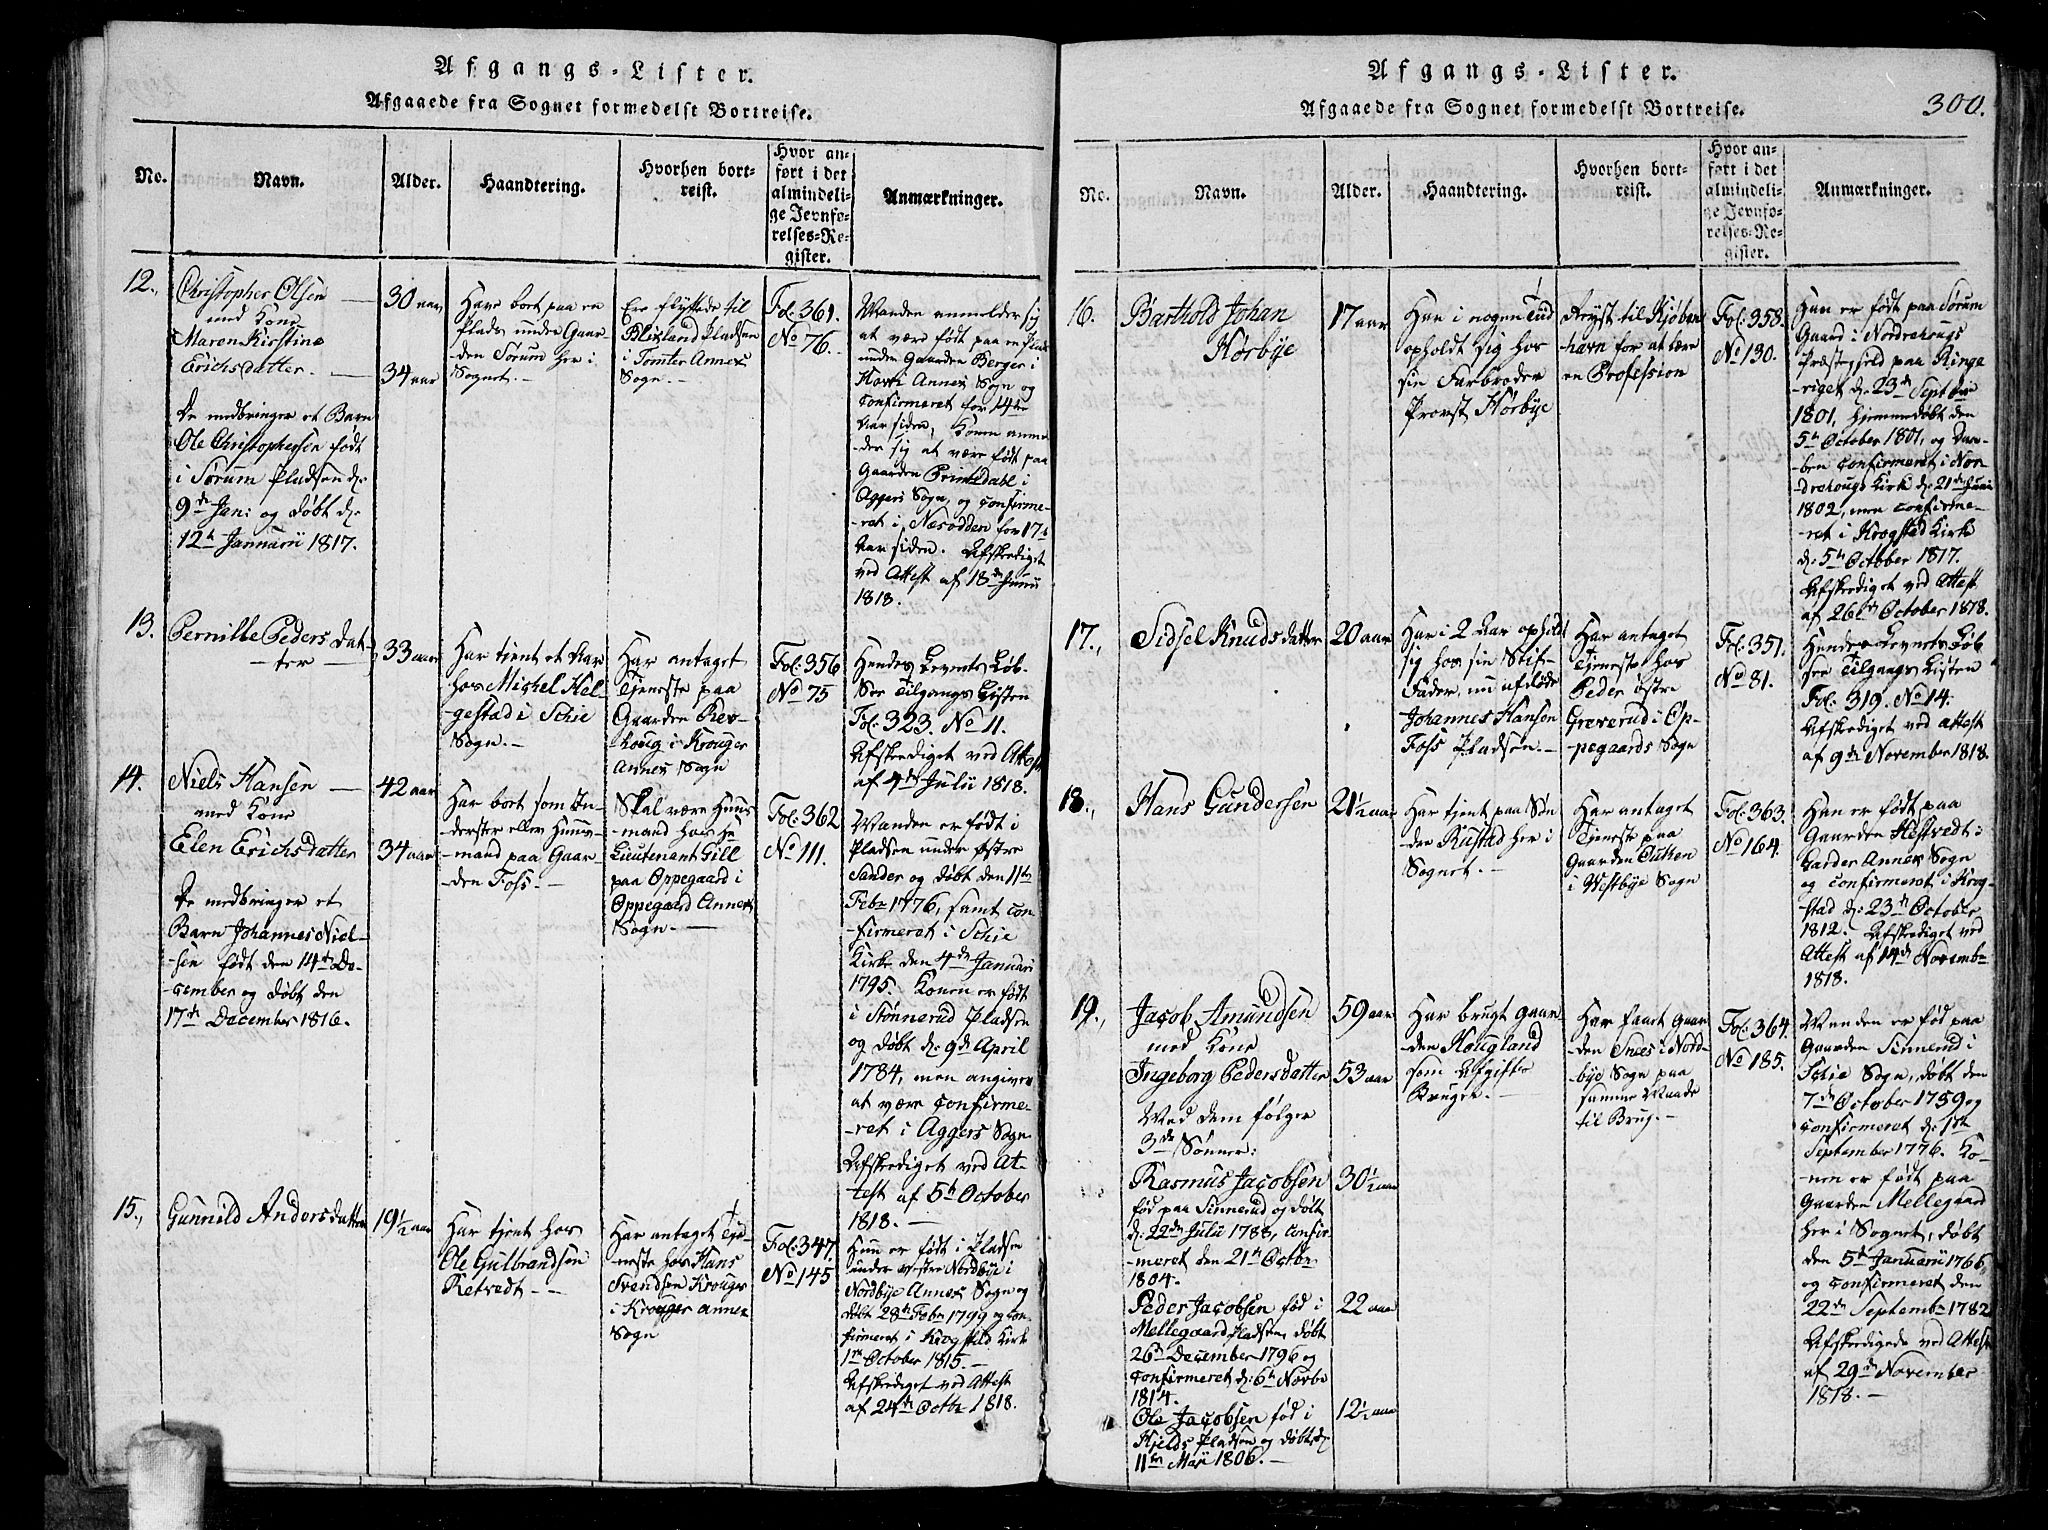 Afgangs-Lister.
Afgaaede fra Sognet formedelst Bortreise.
No.
Navn.
Alder.
Haandtering.
Hvorhen bort-
reist.
Hvor an-
ført i det
almindeli-
ge Jevnfø-
relses-Re-
gister.
Anmærkninger.
12.,
Christopher Olsen
med Kone
Maren Kirstine
Erichsdatter.
De medbringer et Barn
Ole Christophersen født
i Sørum Pladsen d:
9de Jan: og døbt d:
12te Januarii 1817.
30 aar
34 aar
Have boet paa en
Plads under Gaar-
den Sørum her i
Sognet.
Ere flyttede til
Pladsen
i Tomter Annex
Sogn.
Fol: 361.
No 76.
Manden anmelder sig
at være født paa en Plads
under Gaarden Berger i
Annex Sogn og
confirmeret for 14ten
Aar siden, Konen anmel-
der sig at være født paa
Gaarden Brinsdahl i
Aggers Sogn, og confirme-
-ret i Næsodden for 17ten
Aar siden. Afskediget
ved Attest af 18de Junii
1818.
13.
Pernille Peders dat-
-ter
33 aar
Har tjent et Aar
hos Michel Hel-
-gestad i Schie
Sogn.
Har antaget
Tjeneste paa
Gaarden Rev-
houg i Krouger
Annex Sogn
Fol: 356
No 75
Hendes Levnets Løb
See Tilgangs Listen
Fol: 323. No 11.
Afskediget ved Attest
af 4de Julii 1818.
14.
Niels Hansen
med Kone
Elen Erichsdatter
De medbringer et
Barn Johannes Niel-
-sen født den 14de De-
-cember og døbt den
17de December 1816.
42 aar
34 aar
Har boet som In-
derster eller Huus-
-mand paa Gaar-
-den Foss.
Skal være Huus-
-mand hos Hr
Lieutenant Gill
paa Oppegaard i
Oppegaard Annex
Sogn.
Fol: 362
No 111.
Manden er født i
Pladsen under Østre
Sander og døbt den 11te
Febr 1776, samt con-
-firmeret i Schie
Kirke den 4de Januari
1795. Konen er født
i Stønnerud Pladsen
og døbt d: 9de April
1784, men angiver
at være confirme-
-ret i Aggers Sogn
Afskediget ved At-
-test af 5te October
1818.
15.,
Gunnild Andersdatter
19½ aar
Har tjent hos
Ole Gulbrandsen
Retvedt
Har antaget Tje-
neste hos Hans
Svendsen Krouger
i Krouger Annex
Sogn
Fol: 347,
No 145
Hun er født i Pladsen
under vestre Nordbye i
Nordbye Annex Sogn og
døbt 28de Febr 1799 og con-
firmeret i Krogstad Kirke
1ste October 1815.
Afskediget ved Attest
af 24de Octbr 1818.
Afgangs-Lister.
Afgaaede fra Sognet formedelst Bortreise.
300.
No.
Navn.
Alder.
Haandtering.
Hvorhen bort-
reist.
Hvor an-
ført i det
almindeli-
ge Jevnfø-
relses-Re-
gister.
Anmærkninger.
16.
Barthold Johan
Hörbye
17 aar
Han i nogen Tiid
opholdt sig hos
sin Farbroder
Provst Hörbye
Reyst til Kjøben
havn for at lære
en Profession
Fol: 358.
No 130.
Han er født paa Sørum
Gaard i Nordrehougs
Præstegjeld paa Ringe
-riget d: 23de Septbr
1801, hjemmedøbt den
5te October 1801, og Daa-
-ben confirmeret i Nor-
-drehougs Kirke d: 21de Junii
1802, men confirme-
-ret i Krogstad Kirke
d: 5te October 1817.
Afskediget ved Attest
af 26de October 1818.
17.,
Sidsel Knudsdatter
20 aar
Har i 2 Aar opholdt
sig hos sin Stif-
Fader, nu afdøde
Johannes Hansen
Foss Pladsen.
Har antaget
Tjeneste hos
Peder Østre
Greverud i Op-
-pegaards Sogn
Fol: 351.
No 81.
Hendes Levnets Løb
see Tilgangs Listen
Fol: 319. No 14.
Afskediget ved Attest
af 9de November 1818.
18.,
Hans Gundersen
21½ aar
Har tjent paa Søn
den Rustad her i
Sognet.
Har antaget
Tjeneste paa
Gaarden Tutten
i Westbye Sogn
Fol: 363.
No 164.
Han er født paa
Gaarden Hestvedt i
Garder Annex Sogn
og confirmeret i Krog-
stad d: 23de October
1812. Afskediget ved
Attest af 14de Novembr
1818.
19.,
Jacob Amundsen
med Kone
Ingeborg Pedersdatter
Med dem følger
3de Sønner:
Rasmus Jacobsen
fød paa Sinnerud og døbt
d: 22de Julii 1788, confir-
-meret den 21de Octbr
1804.
Peder Jacobsen fød i
Mellegaard Pladsen, døbt
26de December 1796 og
confirmeret d: 6te Novbr
1814.
Ole Jacobsen fød i
Hjelds Pladsen og døbt d:
11te Maii 1806.
59 aar
53 aar
30½ aar
22 aar
12½ aar
Har brugt Gaar
-den Hougland
som afgifts
Bruger.
Har faaet Gaar
den Snees i Nord-
bye Sogn paa
samme Maade
til Brug.
Fol: 364.
No 185.
Manden er fød paa
Gaarden Sinnerud i
Schie Sogn, døbt den
7de October 1759 og
confirmeret d: 1ste
September 1776. Ko-
-nen er født paa
Gaarden Mellegaard
her i Sognet, døbt
den 5te Januarii 1766,
og confirmeret den
22de Septembr 1782
Afskedigede ved Attest
af 29de November
1818.